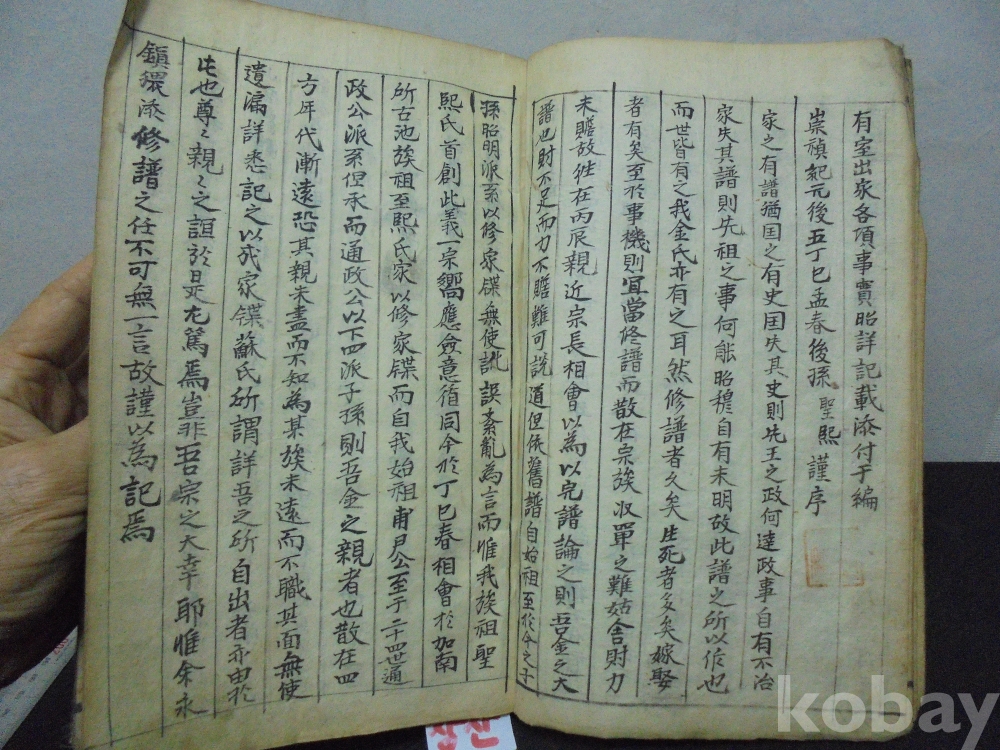 有室出家各項事實昭詳記載添付于編
崇禎紀元後五丁巳孟春後孫 聖熙 謹序
家之有譜猶国之有史国失其史則先王之政何達政事自有不治
家失其譜則先祖之事何能昭穆自有未明故此譜之所以作也
而世皆有之我金氏亦有之耳然修譜者久矣生死者多矣嫁娶
者有矣至於事機則宜當修譜而散在宗族収單之難姑舍財力
未贍故徃在丙辰親近宗長相會以為以完譜論之則吾金之大
譜也財不足而力不贍難可説道但依舊譜自始祖至於今之子
孫昭明派系以修家牒無使訛誤紊亂為言而惟我族祖聖
熙氏首創此義一宗嚮應僉意循同今於丁巳春相會於加南
所古池族祖至熙氏家以修家牒而自我始祖甫尹公至于二十四世通
政公派系但承而通政公以下四派子孫則吾金之親者也散在四
方年代漸遠恐其親未盡而不知為某族未遠而不職其面無使
遺漏詳悉記之以成家牒蘇氏所謂詳吾之所自出者亦由於
此也尊〻親〻之誼於是尤篤焉豈非吾宗之大幸耶惟余永
鎮猥添修譜之任不可無一言故謹以為記焉
kobay